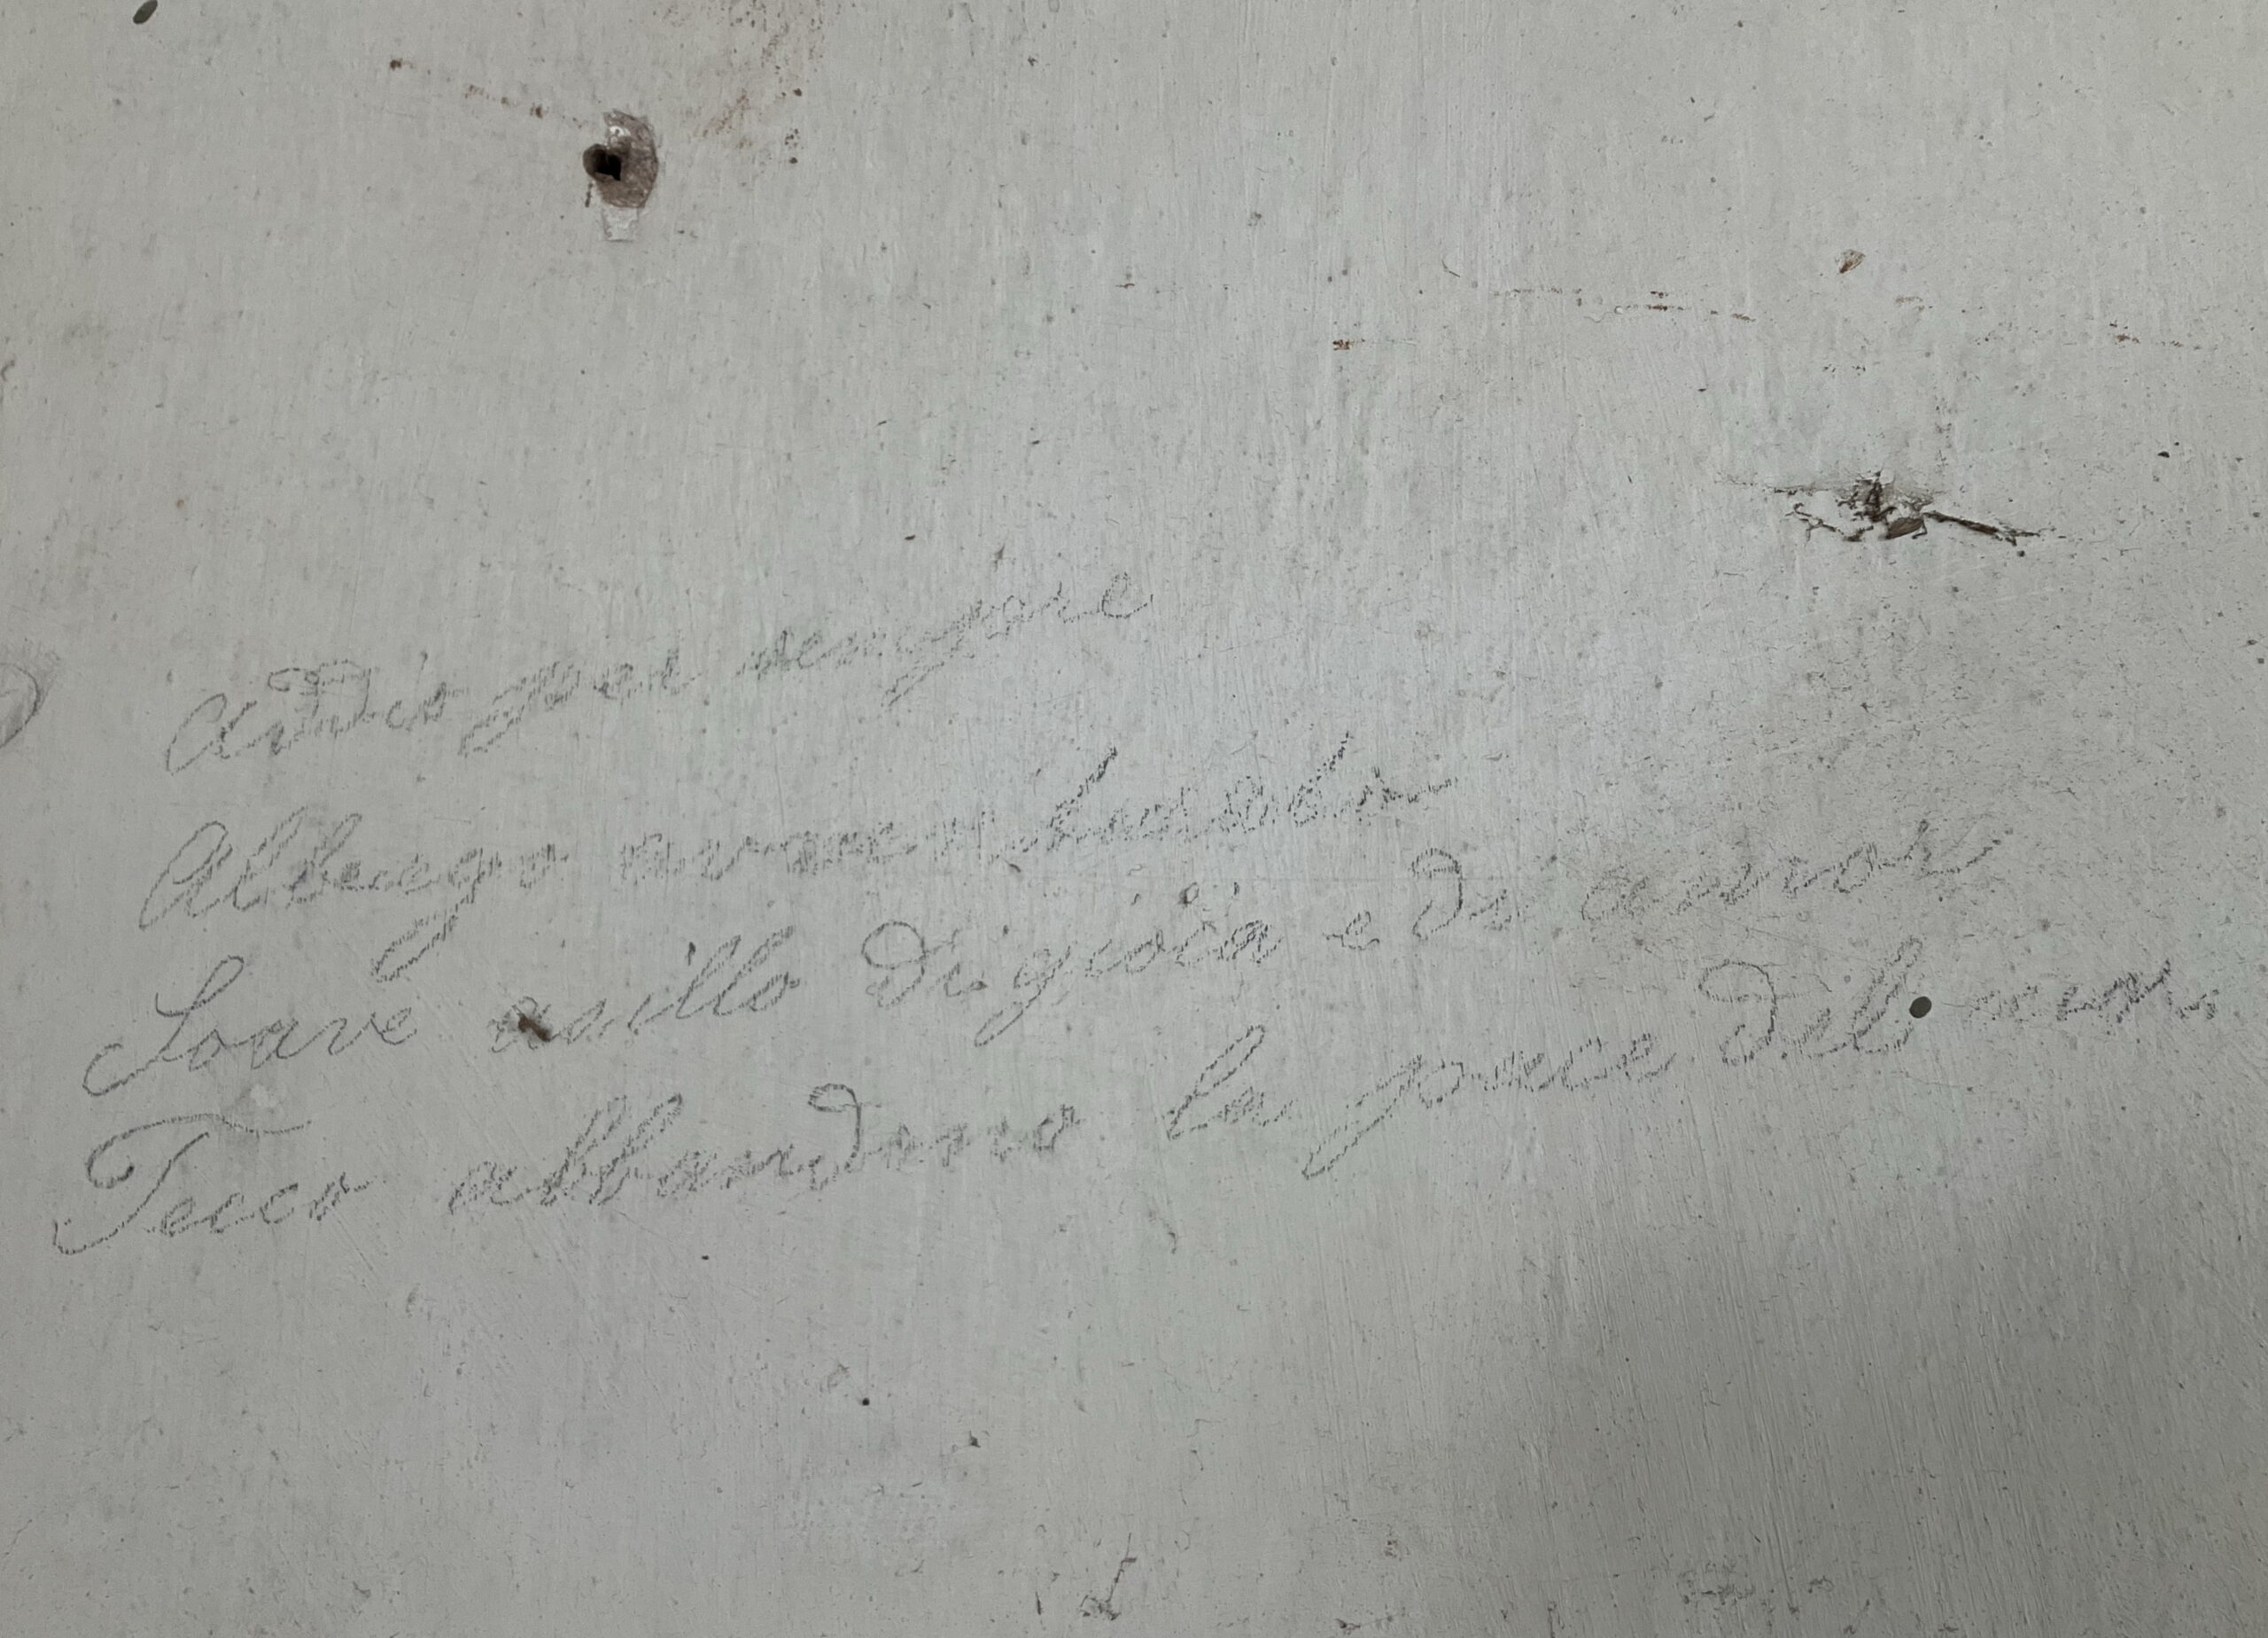 Addio per sempre
Albergo avventurato
Soave asillo di gioia e di amor
Tecco abbandono la pace del cuor